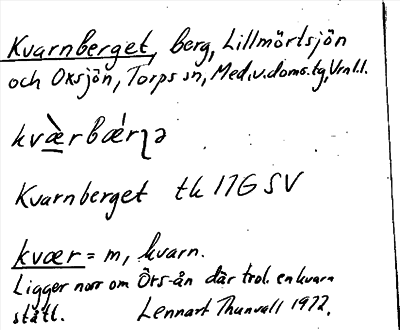 Kvarnberget, berg, Lillmörtsjön
och Oxsjön, Torps sn, Med.v.doms.tg, Vrnl.l.
kvæ̀rbǽrꞑə
Kvarnberget tk 17G SV
kvær = m, kvarn.
Ligger norr om Örs-ån där trol. en kvarn
stått. Lennart Thunvall 1972.